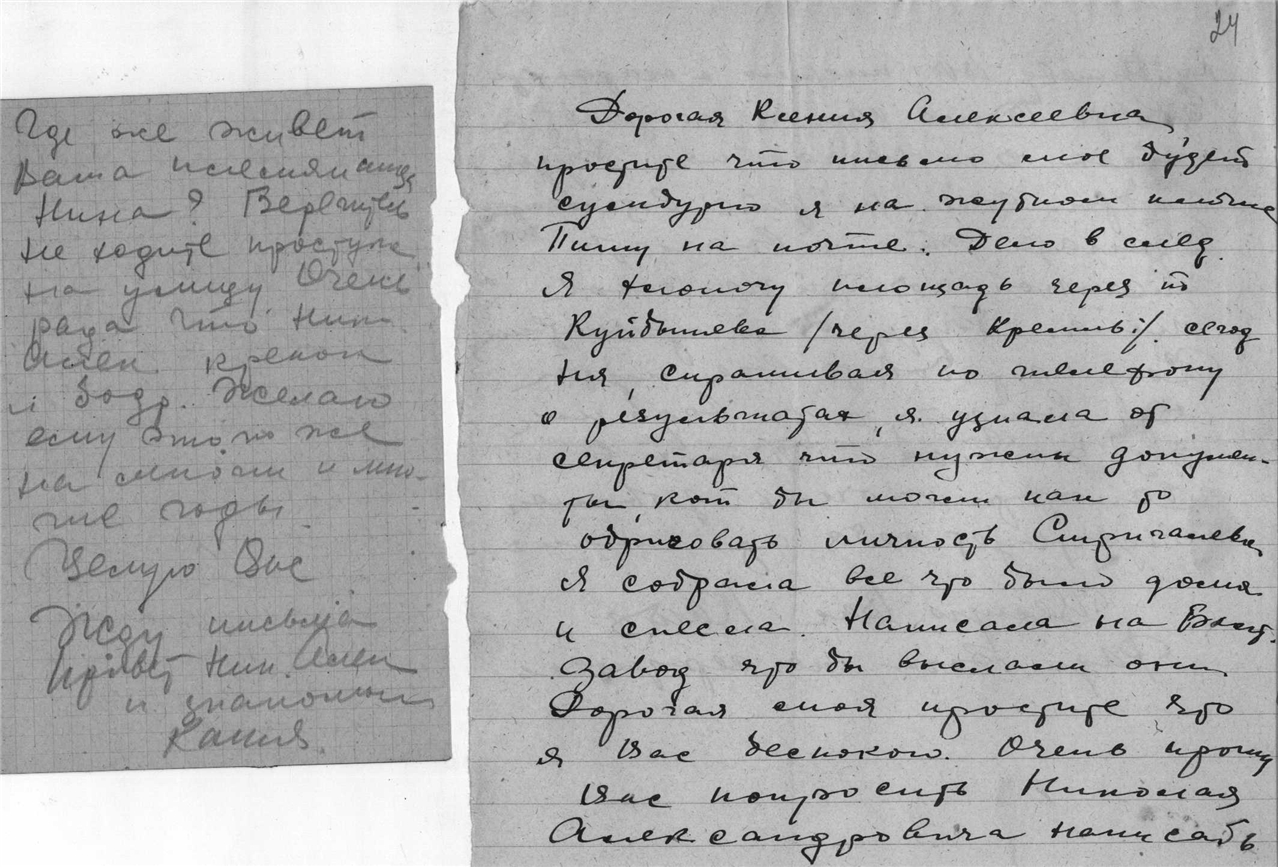 Где же живет
Ваша племянница
Нина? Берегитесь
не ходите простужен.
на улицу Очень
рада что Ник.
Алек. крепок
и бодр. Желаю
ему этого же
на многи и мно-
гие годы.
Целую Вас
Жду письма
Привет Ник. Алек
и знакомым
Капия.
24
Дорогая Ксения Алексеевна,
простите что письмо мое будет
сумбурно я на жутком
Пишу на почте. Дело в след.
Я хлопочу площадь через т.
Куйбышева /через Кремль:/. сегод
ня, спрашивая по телефону
о результатах, я узнала от
секретаря что нужны докумен-
ты, кот бы могли как то
обрисовать личность Стригалева
Я собрала все что было дома
и снесла. Написала на
завод что бы выслали они
Дорогая моя простите что
я Вас беспокою. Очень прошу
Вас попросить Николая
Александровича написать